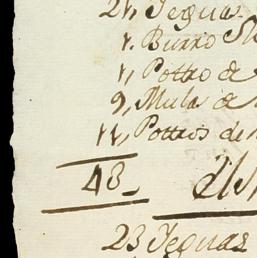 21, Yeguas
1. Burro
1, Pottro de
9, Mula de
11, Pottros de
48
23 Yeguas